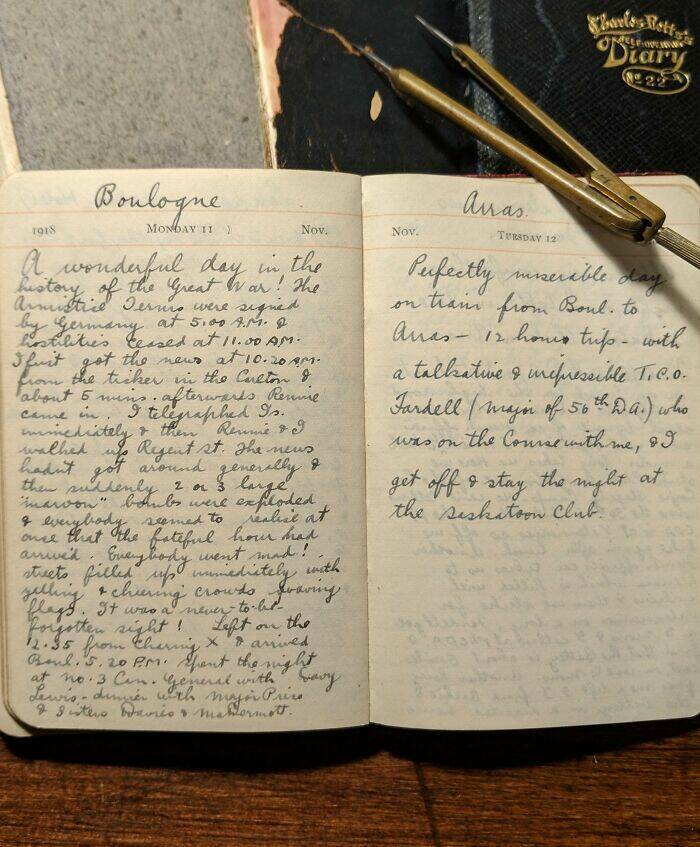 Charles Letts's
Diary
No 22
Boulogne
1918 MONDAY 11 Nov.
A wonderful day in the
history of the Great War! The
Armistice Terms were signed
by Germany at 5.00 A.M. &
hostilities ceased at 11.00 A.M.
I first got the news at 10.20 A.M.
from the ticker in the Carlton &
about 5 mins. afterwards Rennie
came in. I telegraphed Is.
immediately & then Rennie & I
walked up Regent St. The news
hadn't got around generally &
then suddenly 2 or 3 large
"maroon" bombs were exploded
& everybody seemed to realise at
once that the fateful hour had
arrived. Everybody went mad!
streets filled up immediately with
yelling & cheering crowds waving
flags. It was a never-to-be-
forgotten sight! Left on the
12.35 from Charing X & arrived
Boul. 5.20 P.M. spent the night
at No. 3 Can. General with
Lewis - dinner with Major Price
& Sisters Davies & McDermott.
Arras.
Nov. TUESDAY 12
Perfectly miserable day
on train from Boul. to
Arras - 12 hours trip - with
a talkative & irrepressible T.C.O.
Tardell (Major of 56th D.A.) who
was on the Course with me, & I
get off & stay the night at
the Saskatoon Club.